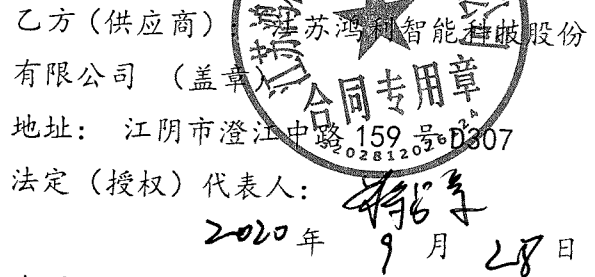 乙方（供应商）：江苏鸿利智能科技股份
有限公司 （盖章）
地址： 江阴市澄江中路 159 号 D307
法定（授权）代表人：
2020 年 9 月 28 日
合同专用章